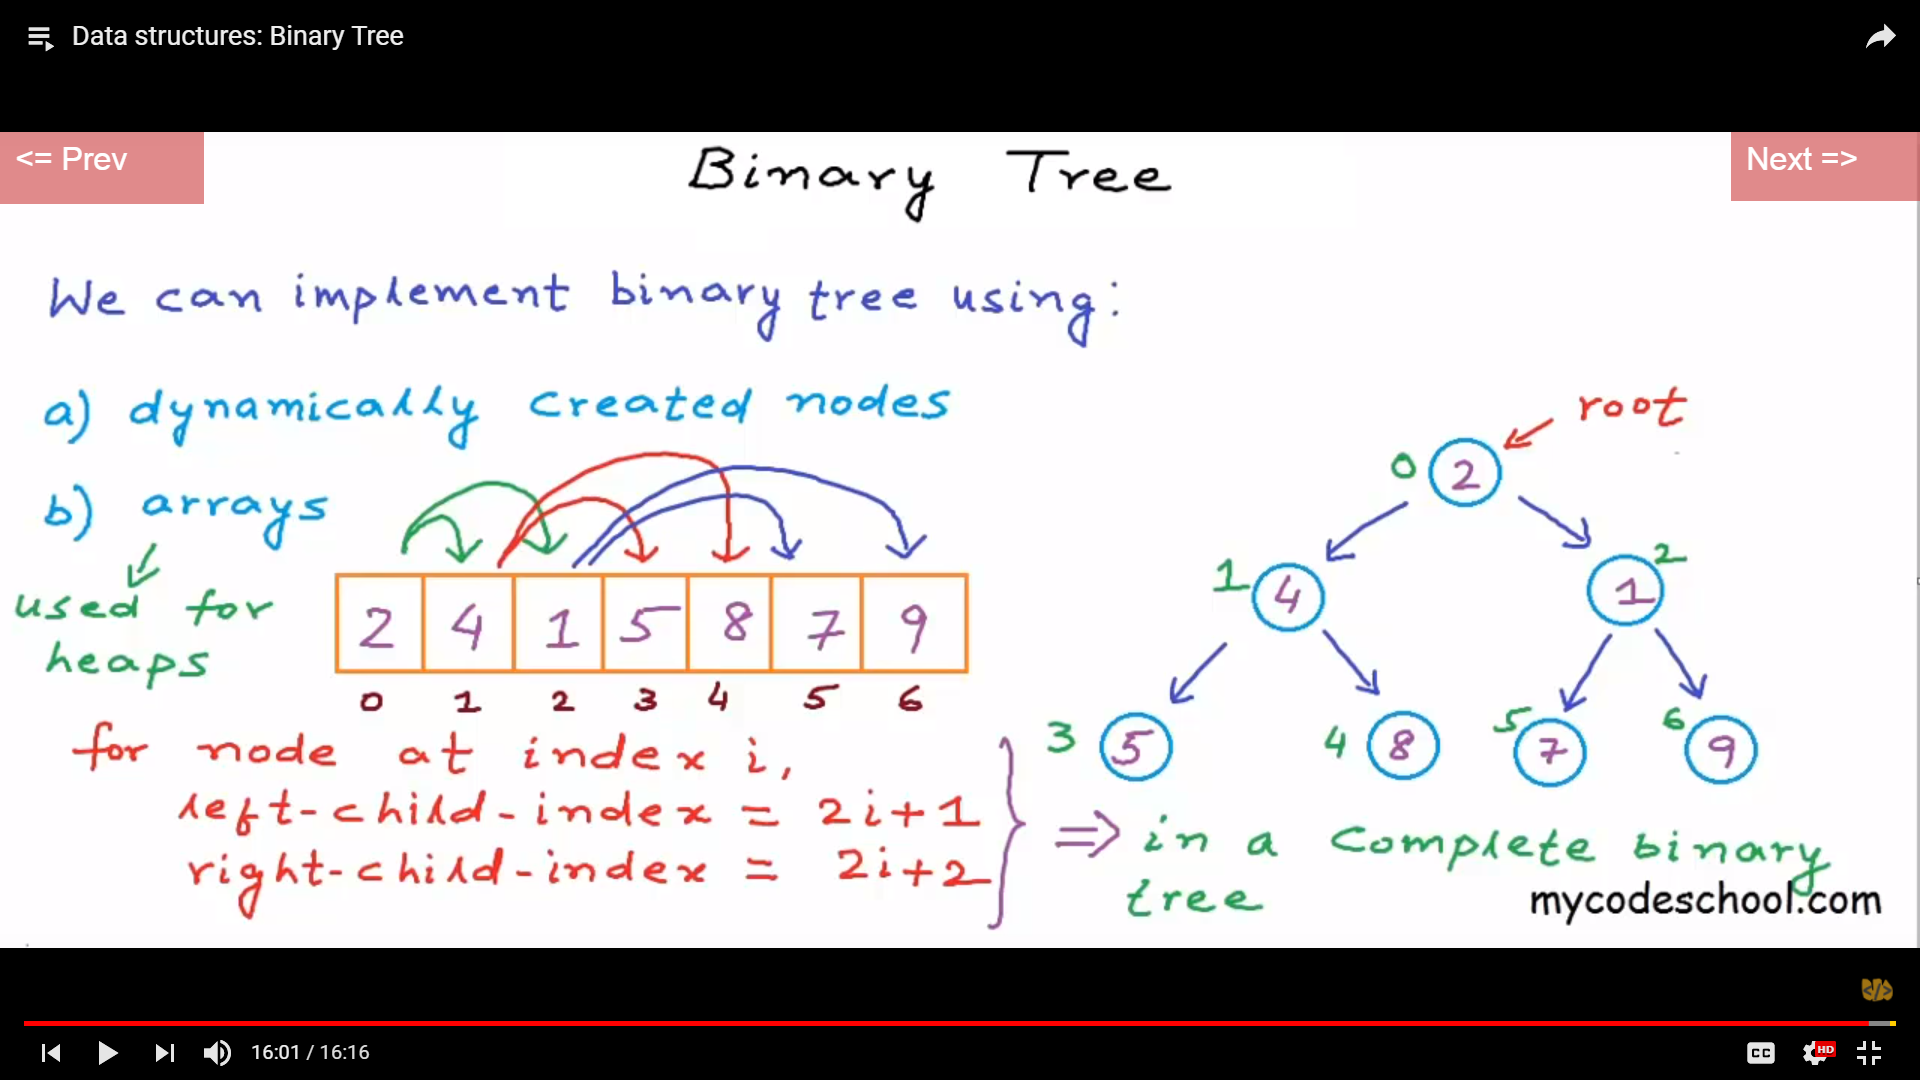 Data structures: Binary Tree
<= Prev
Next =>
Binary Tree
We can implement binary tree using:
a) dynamically created nodes
b) arrays
used for
heaps
2 4 1 5 8 7 9
0 1 2 3 4 5 6
root
0 2
1 4 1 2
3 5 4 8 5 7 6 9
for node at index i,
left-child-index = 2i+1
right-child-index = 2i+2
=> in a complete binary
tree
mycodeschool.com
</>
16:01 / 16:16
CC
HD